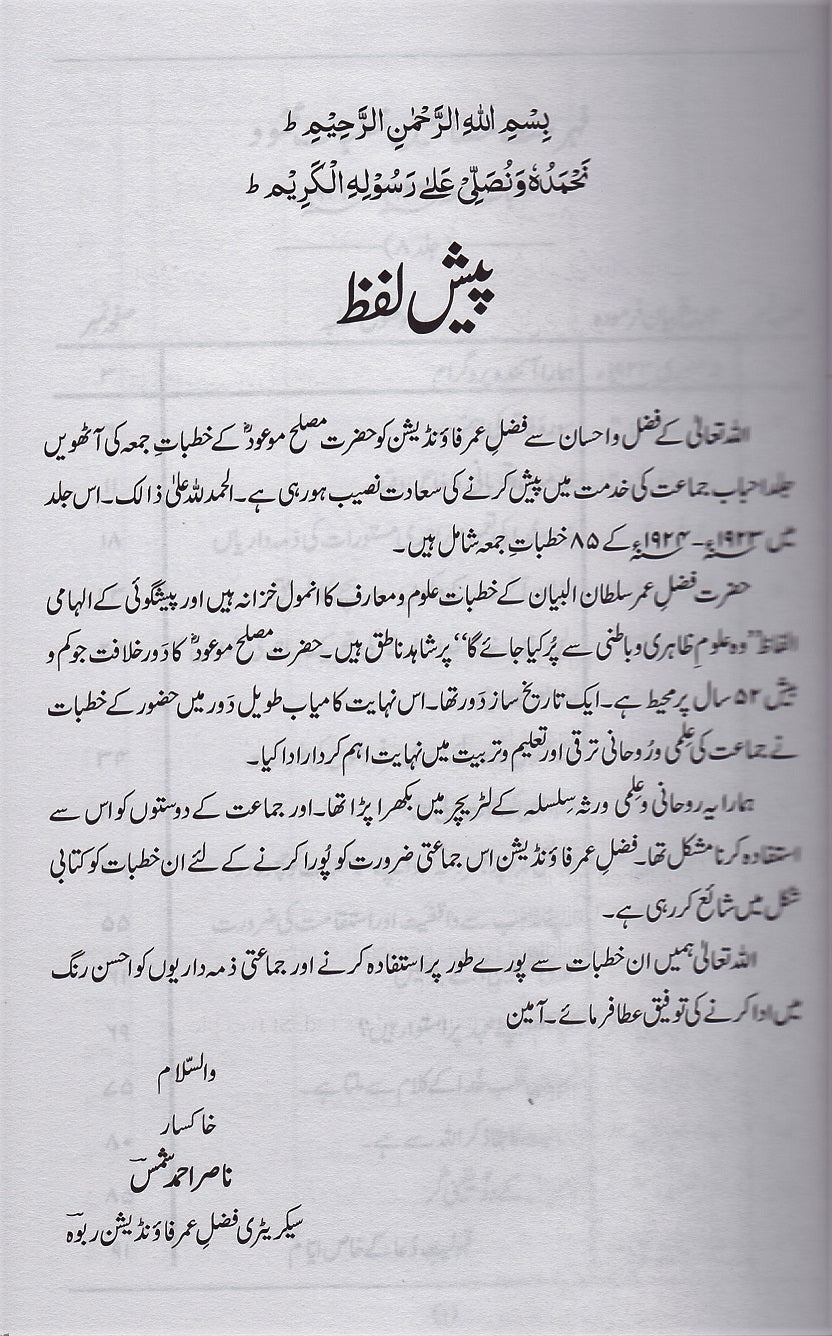 بِسْمِ اللهِ الرَّحْمٰنِ الرَّحِيْمِ ط
نَحْمَدُهٗ وَنُصَلِّىْ عَلٰى رَسُوْلِهِ الْكَرِيْمِ ط
پیش لفظ
اللہ تعالیٰ کے فضل و احسان سے فضلِ عمر فاؤنڈیشن کو حضرت مصلح موعودؓ کے خطباتِ جمعہ کی آٹھویں
جلد احباب جماعت کی خدمت میں پیش کرنے کی سعادت نصیب ہو رہی ہے۔ الحمد للہ علیٰ ذالک۔ اس جلد
میں ۱۹۲۳؁ء – ۱۹۲۴؁ء کے ۸۵ خطباتِ جمعہ شامل ہیں۔
حضرت فضلِ عمر سلطان البیان کے خطبات علوم و معارف کا انمول خزانہ ہیں اور پیشگوئی کے الہامی
الفاظ ’’وہ علومِ ظاہری و باطنی سے پُر کیا جائے گا‘‘ پر شاہد ناطق ہیں۔ حضرت مصلح موعودؓ کا دَورِ خلافت جو کم و
بیش ۵۲ سال پر محیط ہے۔ ایک تاریخ ساز دَور تھا۔ اس نہایت کامیاب طویل دَور میں حضور کے خطبات
نے جماعت کی عِلمی و رُوحانی ترقی اور تعلیم و تربیت میں نہایت اہم کردار ادا کیا۔
ہمارا یہ روحانی و عِلمی ورثہ سِلسلہ کے لٹریچر میں بکھرا پڑا تھا۔ اور جماعت کے دوستوں کو اس سے
استفادہ کرنا مشکل تھا۔ فضلِ عمر فاؤنڈیشن اس جماعتی ضرورت کو پُورا کرنے کے لئے ان خطبات کو کتابی
شکل میں شائع کر رہی ہے۔
اللہ تعالیٰ ہمیں ان خطبات سے پورے طور پر استفادہ کرنے اور جماعتی ذمہ داریوں کو احسن رنگ
میں ادا کرنے کی توفیق عطا فرمائے۔ آمین
والسّلام
خاکسار
ناصر احمد شمسؔ
سیکریٹری فضلِ عمر فاؤنڈیشن ربوہ